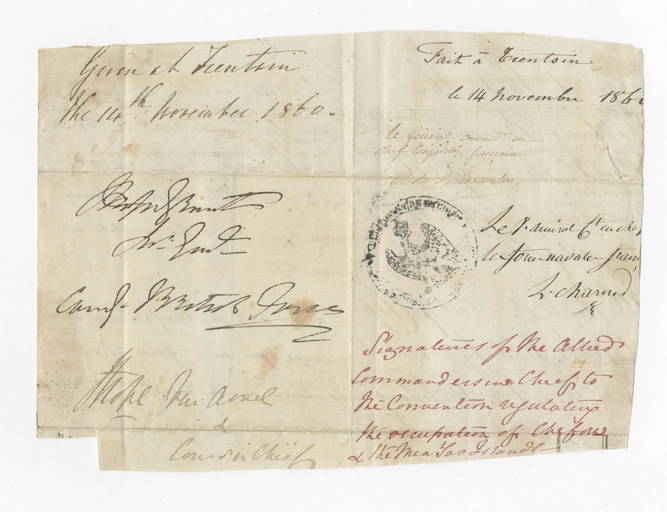 Given at Tientsin
the 14th November 1860.
J Hope Grant
Lt. Genl.
Comg. British Forces
J Hope Vice Admel
&
Comr in Chief
Fait à Tientsin
le 14 novembre 186
le Général command en
chef
Le V. amiral Ct en chef
les forces navales franç
L. Charner
Signatures of the Allied
Commanders in Chief to
the Convention regulating
the occupation of Chefoo
& the Mea Tao Islands